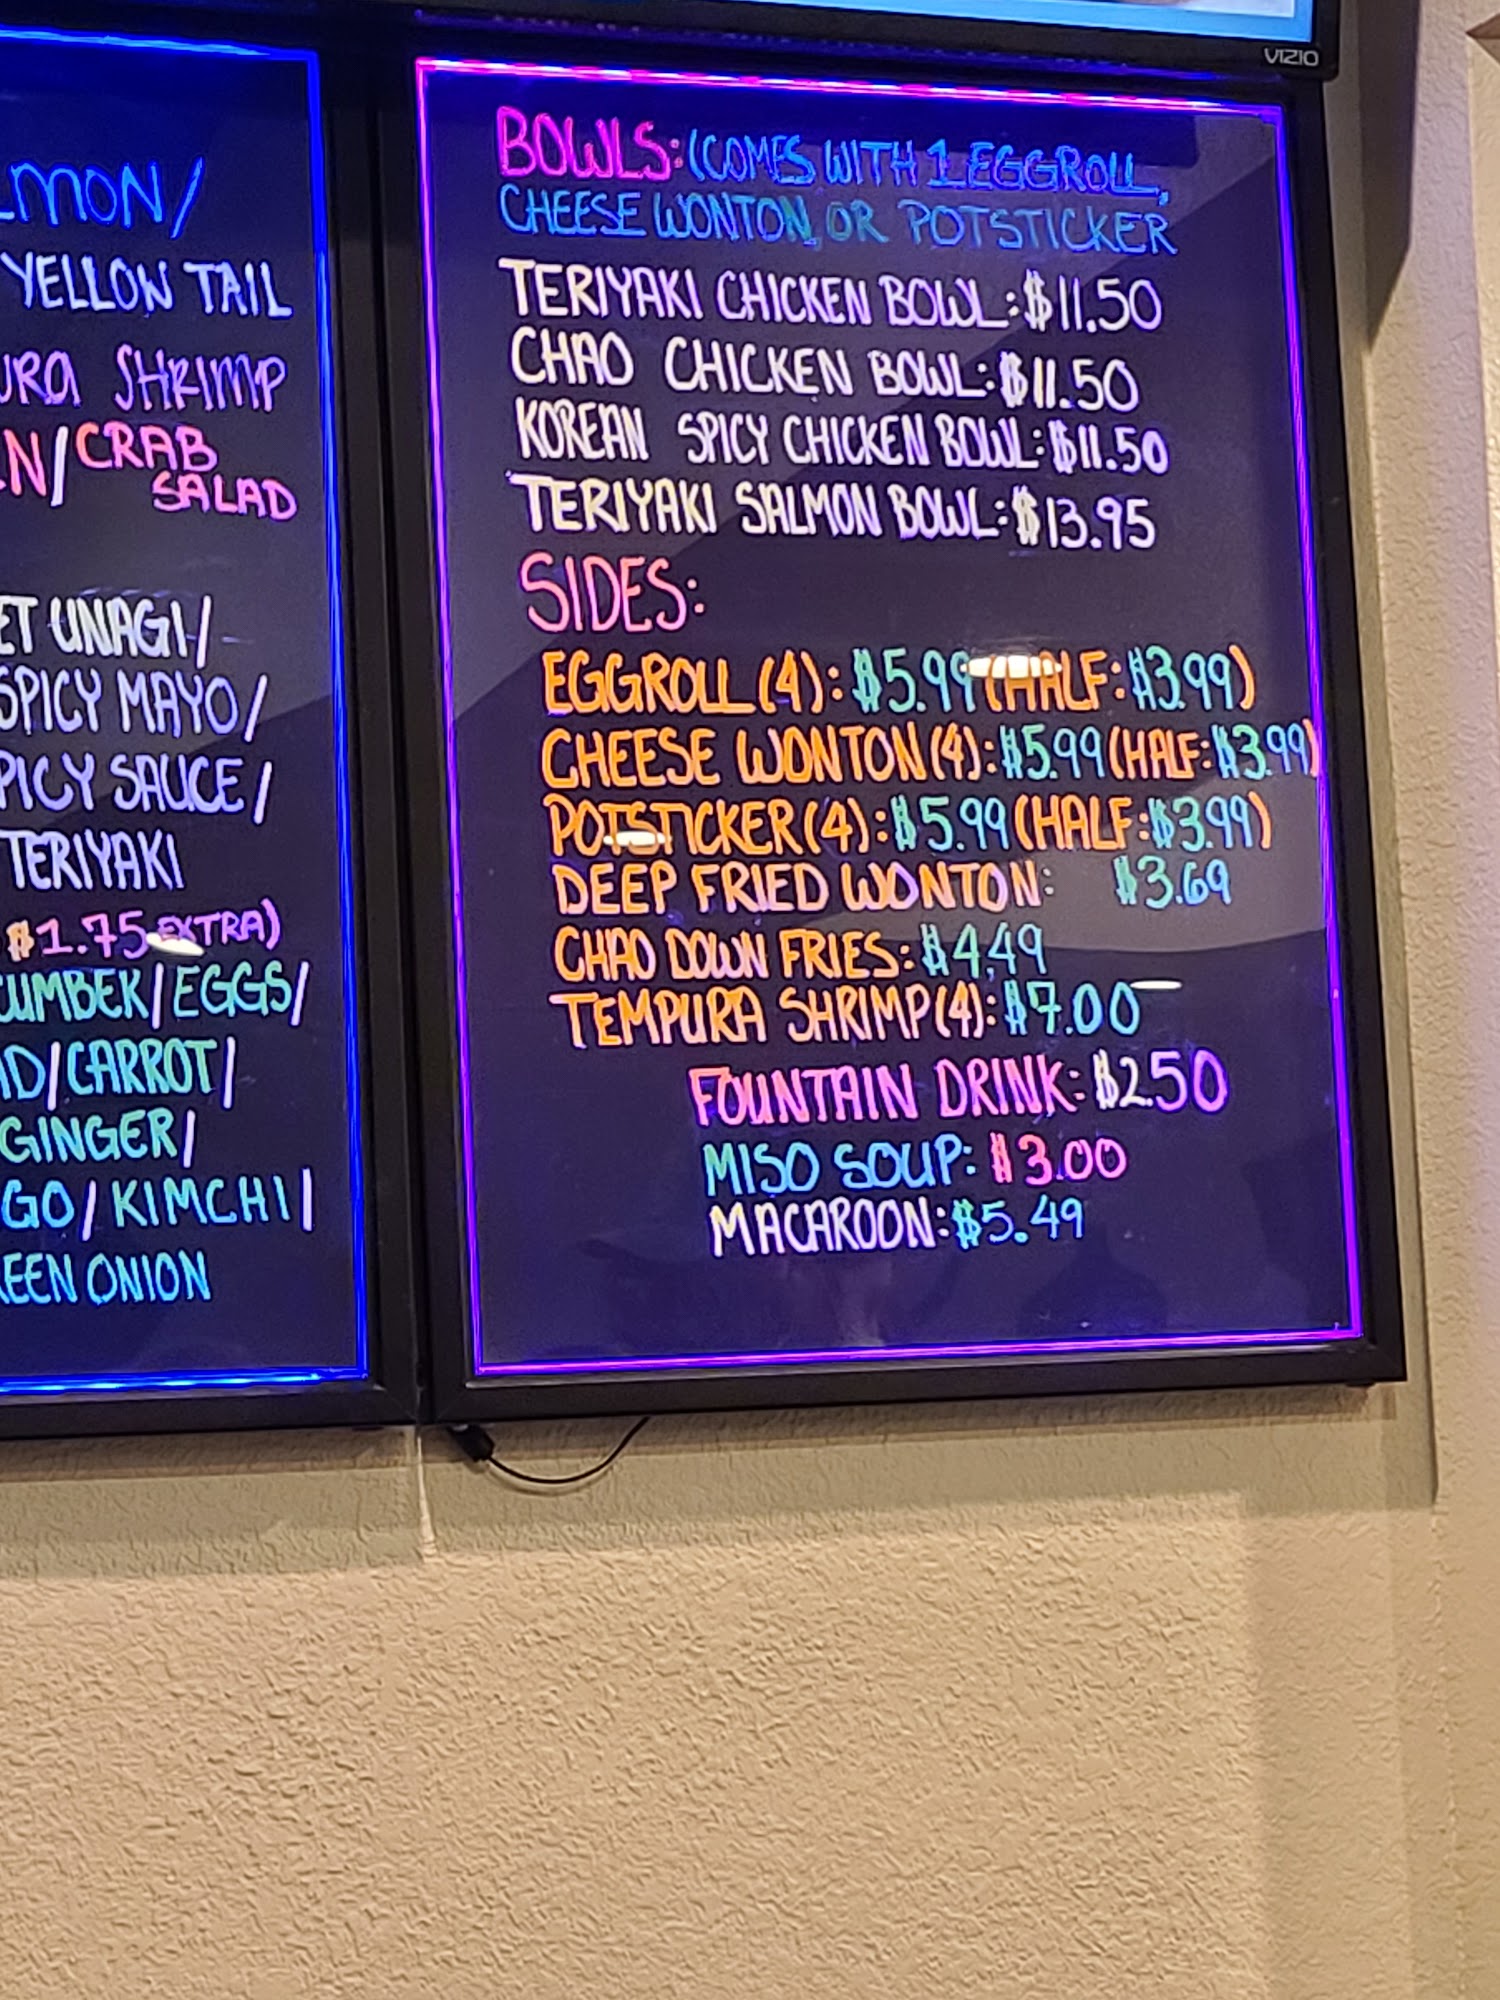 VIZIO
LMON/
YELLOW TAIL
URA SHRIMP
N/CRAB
SALAD
ET UNAGI/
SPICY MAYO/
PICY SAUCE/
TERIYAKI
$1.75 EXTRA)
CUMBER/EGGS/
D/CARROT/
GINGER/
GO/KIMCHI/
EEN ONION
BOWLS:(COMES WITH 1 EGGROLL,
CHEESE WONTON, OR POTSTICKER
TERIYAKI CHICKEN BOWL:$11.50
CHAO CHICKEN BOWL:$11.50
KOREAN SPICY CHICKEN BOWL:$11.50
TERIYAKI SALMON BOWL:$13.95
SIDES:
EGGROLL(4):$5.99(HALF:$3.99)
CHEESE WONTON(4):$5.99(HALF:$3.99)
POTSTICKER(4):$5.99(HALF:$3.99)
DEEP FRIED WONTON: $3.69
CHAO DOWN FRIES:$4.49
TEMPURA SHRIMP(4):$7.00
FOUNTAIN DRINK:$2.50
MISO SOUP:$3.00
MACAROON:$5.49